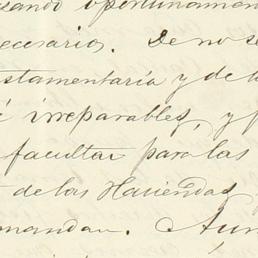 sando oportunamen
ecesarios. De no se
stamentaria y de l
é irreparables, y p
facultar para las
de las Haciendas
mandan. Aun